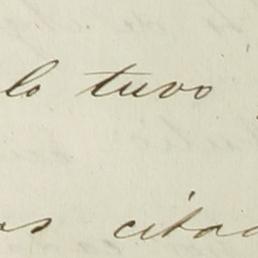 lo tuvo
as citad